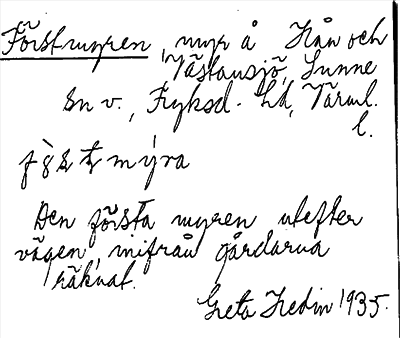 Förstmyren, myr å Hån och
Västansjö, Sunne
sn v., Fryksd. hd, Värml.
l.
mýra
Den första myren utefter
vägen, inifrån gårdarna
räknat.
Greta Hedin 1935.